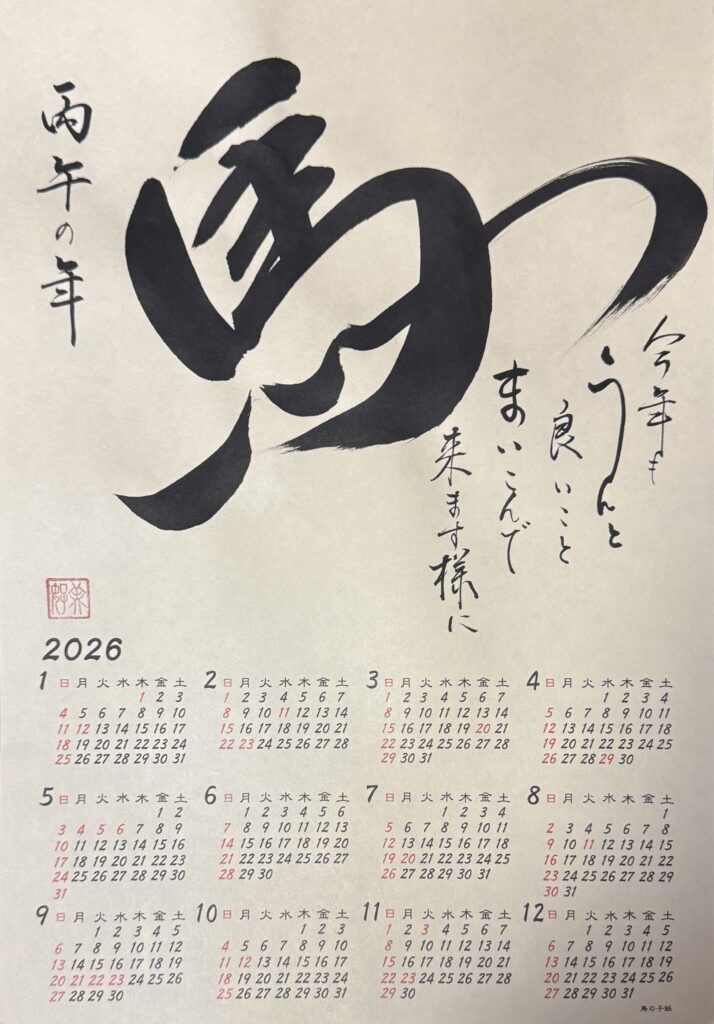 馬
丙午の年
今年も
うんと
良いこと
まいこんで
来ます様に
2026
1 日 月 火 水 木 金 土
1 2 3
4 5 6 7 8 9 10
11 12 13 14 15 16 17
18 19 20 21 22 23 24
25 26 27 28 29 30 31
2 日 月 火 水 木 金 土
1 2 3 4 5 6 7
8 9 10 11 12 13 14
15 16 17 18 19 20 21
22 23 24 25 26 27 28
3 日 月 火 水 木 金 土
1 2 3 4 5 6 7
8 9 10 11 12 13 14
15 16 17 18 19 20 21
22 23 24 25 26 27 28
29 30 31
4 日 月 火 水 木 金 土
1 2 3 4
5 6 7 8 9 10 11
12 13 14 15 16 17 18
19 20 21 22 23 24 25
26 27 28 29 30
5 日 月 火 水 木 金 土
1 2
3 4 5 6 7 8 9
10 11 12 13 14 15 16
17 18 19 20 21 22 23
24 25 26 27 28 29 30
31
6 日 月 火 水 木 金 土
1 2 3 4 5 6
7 8 9 10 11 12 13
14 15 16 17 18 19 20
21 22 23 24 25 26 27
28 29 30
7 日 月 火 水 木 金 土
1 2 3 4
5 6 7 8 9 10 11
12 13 14 15 16 17 18
19 20 21 22 23 24 25
26 27 28 29 30 31
8 日 月 火 水 木 金 土
1
2 3 4 5 6 7 8
9 10 11 12 13 14 15
16 17 18 19 20 21 22
23 24 25 26 27 28 29
30 31
9 日 月 火 水 木 金 土
1 2 3 4 5
6 7 8 9 10 11 12
13 14 15 16 17 18 19
20 21 22 23 24 25 26
27 28 29 30
10 日 月 火 水 木 金 土
1 2 3
4 5 6 7 8 9 10
11 12 13 14 15 16 17
18 19 20 21 22 23 24
25 26 27 28 29 30 31
11 日 月 火 水 木 金 土
1 2 3 4 5 6 7
8 9 10 11 12 13 14
15 16 17 18 19 20 21
22 23 24 25 26 27 28
29 30
12 日 月 火 水 木 金 土
1 2 3 4 5
6 7 8 9 10 11 12
13 14 15 16 17 18 19
20 21 22 23 24 25 26
27 28 29 30 31
鳥の子紙